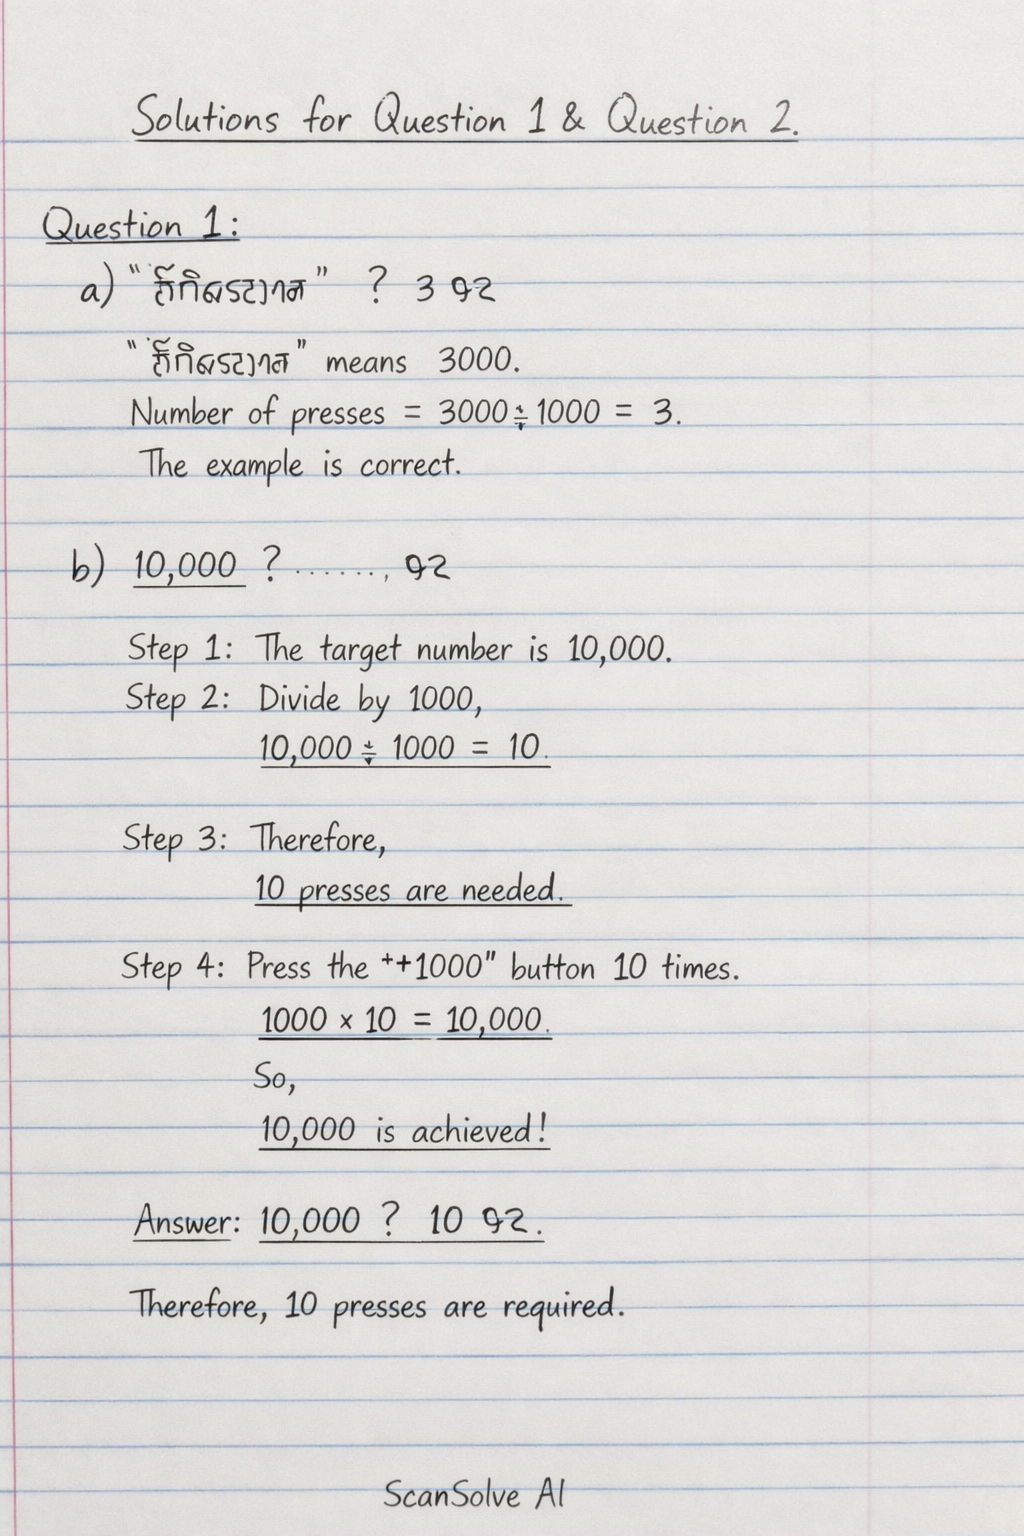 Solutions for Question 1 & Question 2.
Question 1:
a) ? 3
means 3000.
Number of presses = 3000 ÷ 1000 = 3.
The example is correct.
b) 10,000 ? .......,
Step 1: The target number is 10,000.
Step 2: Divide by 1000,
10,000 ÷ 1000 = 10.
Step 3: Therefore,
10 presses are needed.
Step 4: Press the "+1000" button 10 times.
1000 × 10 = 10,000.
So,
10,000 is achieved!
Answer: 10,000 ? 10
Therefore, 10 presses are required.
ScanSolve AI